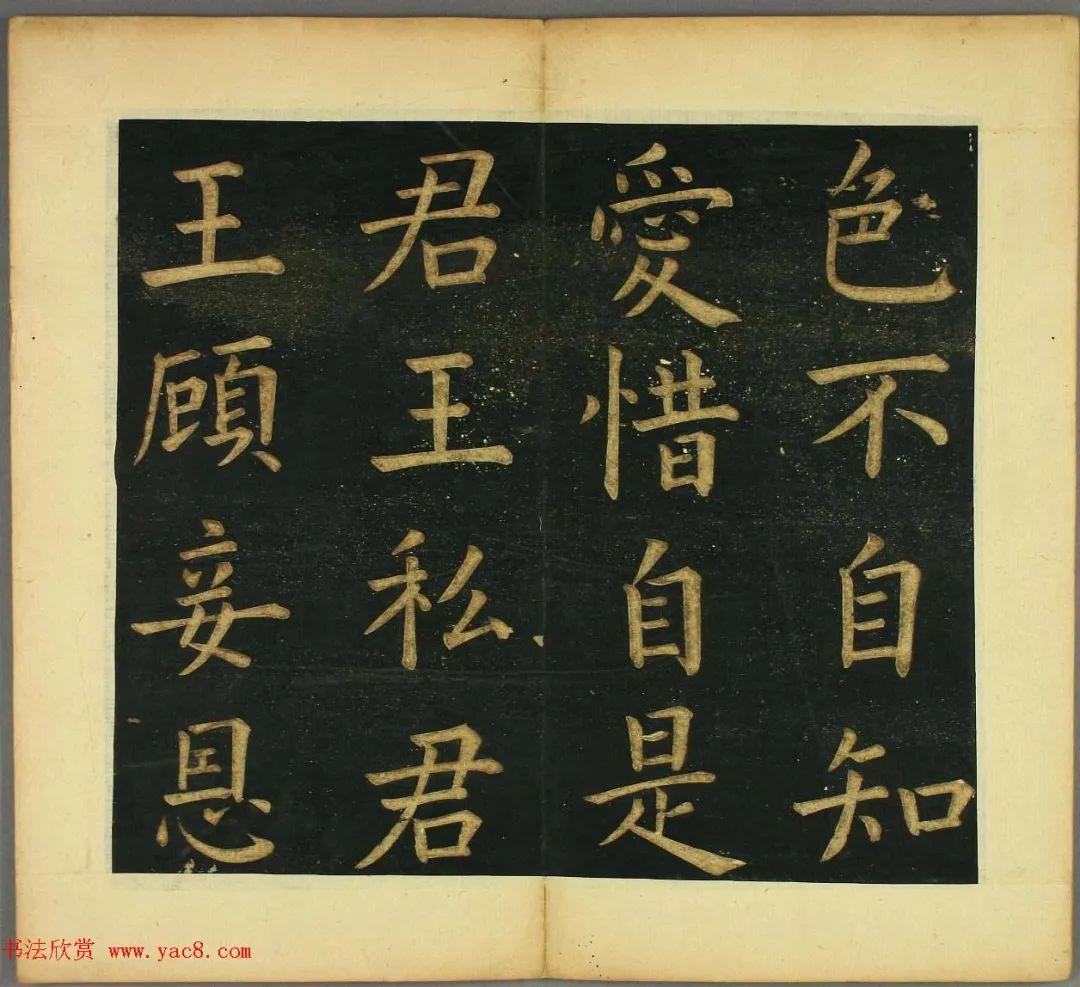 色不自知
愛惜自是
君王私君
王顧妾恩
书法欣赏 www.yac8.com